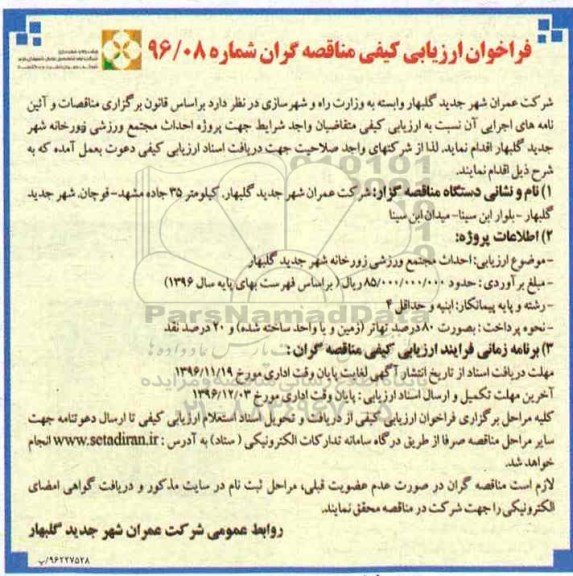 فراخوان ارزیابی کیفی مناقصه گران شماره ۹۶/۰۸
شرکت عمران شهر جدید گلبهار وابسته به وزارت راه و شهرسازی در نظر دارد براساس قانون برگزاری مناقصات و آئین
نامه های اجرایی آن نسبت به ارزیابی کیفی متقاضیان واجد شرایط جهت پروژه احداث مجتمع ورزشی زورخانه شهر
جدید گلبهار اقدام نماید. لذا از شرکتهای واجد صلاحیت جهت دریافت اسناد ارزیابی کیفی دعوت بعمل آمده که به
شرح ذیل اقدام نمایند.
۱) نام و نشانی دستگاه مناقصه گزار: شرکت عمران شهر جدید گلبهار. کیلومتر ۳۵ جاده مشهد- قوچان. شهر جدید
گلبهار - بلوار ابن سینا- میدان ابن سینا
۲) اطلاعات پروژه:
- موضوع ارزیابی: احداث مجتمع ورزشی زورخانه شهر جدید گلبهار
- مبلغ برآوردی: حدود ۸۵/۰۰۰/۰۰۰/۰۰۰ ریال ( براساس فهرست بهای پایه سال ۱۳۹۶)
- رشته و پایه پیمانکار: ابنیه و حداقل ۴
- نحوه پرداخت: بصورت ۸۰ درصد تهاتر (زمین و یا واحد ساخته شده) و ۲۰ درصد نقد
۳) برنامه زمانی فرایند ارزیابی کیفی مناقصه گران :
مهلت دریافت اسناد از تاریخ انتشار آگهی لغایت پایان وقت اداری مورخ ۱۳۹۶/۱۱/۱۹
آخرین مهلت تکمیل و ارسال اسناد ارزیابی : پایان وقت اداری مورخ ۱۳۹۶/۱۲/۰۳
کلیه مراحل برگزاری فراخوان ارزیابی کیفی از دریافت و تحویل اسناد استعلام ارزیابی کیفی تا ارسال دعوتنامه جهت
سایر مراحل مناقصه صرفا از طریق درگاه سامانه تدارکات الکترونیکی ( ستاد) به آدرس : www.setadiran.ir انجام
خواهد شد.
لازم است مناقصه گران در صورت عدم عضویت قبلی، مراحل ثبت نام در سایت مذکور و دریافت گواهی امضای
الکترونیکی را جهت شرکت در مناقصه محقق نمایند.
روابط عمومی شرکت عمران شهر جدید گلبهار
۹۶۲۲۷۵۲۸/پ
ParsNamadData